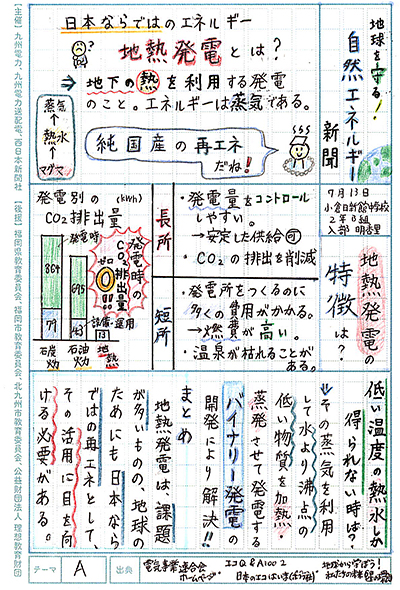 地球を守る!
自然エネルギー
新聞
7月13日
小倉日新館中学校
2年B組
日本ならではのエネルギー
地熱発電とは?
⇒地下の熱を利用する発電
のこと。エネルギーは蒸気である。
蒸気
↑
熱水
↑
マグマ
純国産の再エネ
だね!
地熱発電の
特徴
は?
長所
・発電量をコントロール
しやすい。
→安定した供給可
・CO₂の排出を削減
短所
・発電所をつくるのに
多くの費用がかかる。
→燃費が高い。
・温泉が枯れることが
ある。
発電別の (kWh)
CO₂排出量
発電時
864
79
石炭
火力
695
43
石油
火力
設備・運用
13
地熱
発電時の
CO₂排出量
ゼロ
0
!!
低い温度の熱水しか
得られない時は?
↓その蒸気を利用
して水より沸点の
低い物質を加熱・
蒸発させて発電する
バイナリー発電の
開発により解決!!
まとめ
地熱発電は、課題
が多いものの、地球の
ためにも日本なら
ではの再エネとして、
その活用に目を向
ける必要がある。
テーマ
A
出典
電気事業連合会
ホームページ
エコQ&A100 2
日本のエコはいま(ポプラ社)
地球から学ぼう!
【主催】九州電力、九州電力送配電、西日本新聞社 【後援】福岡県教育委員会、福岡市教育委員会、北九州市教育委員会、公益財団法人 理想教育財団